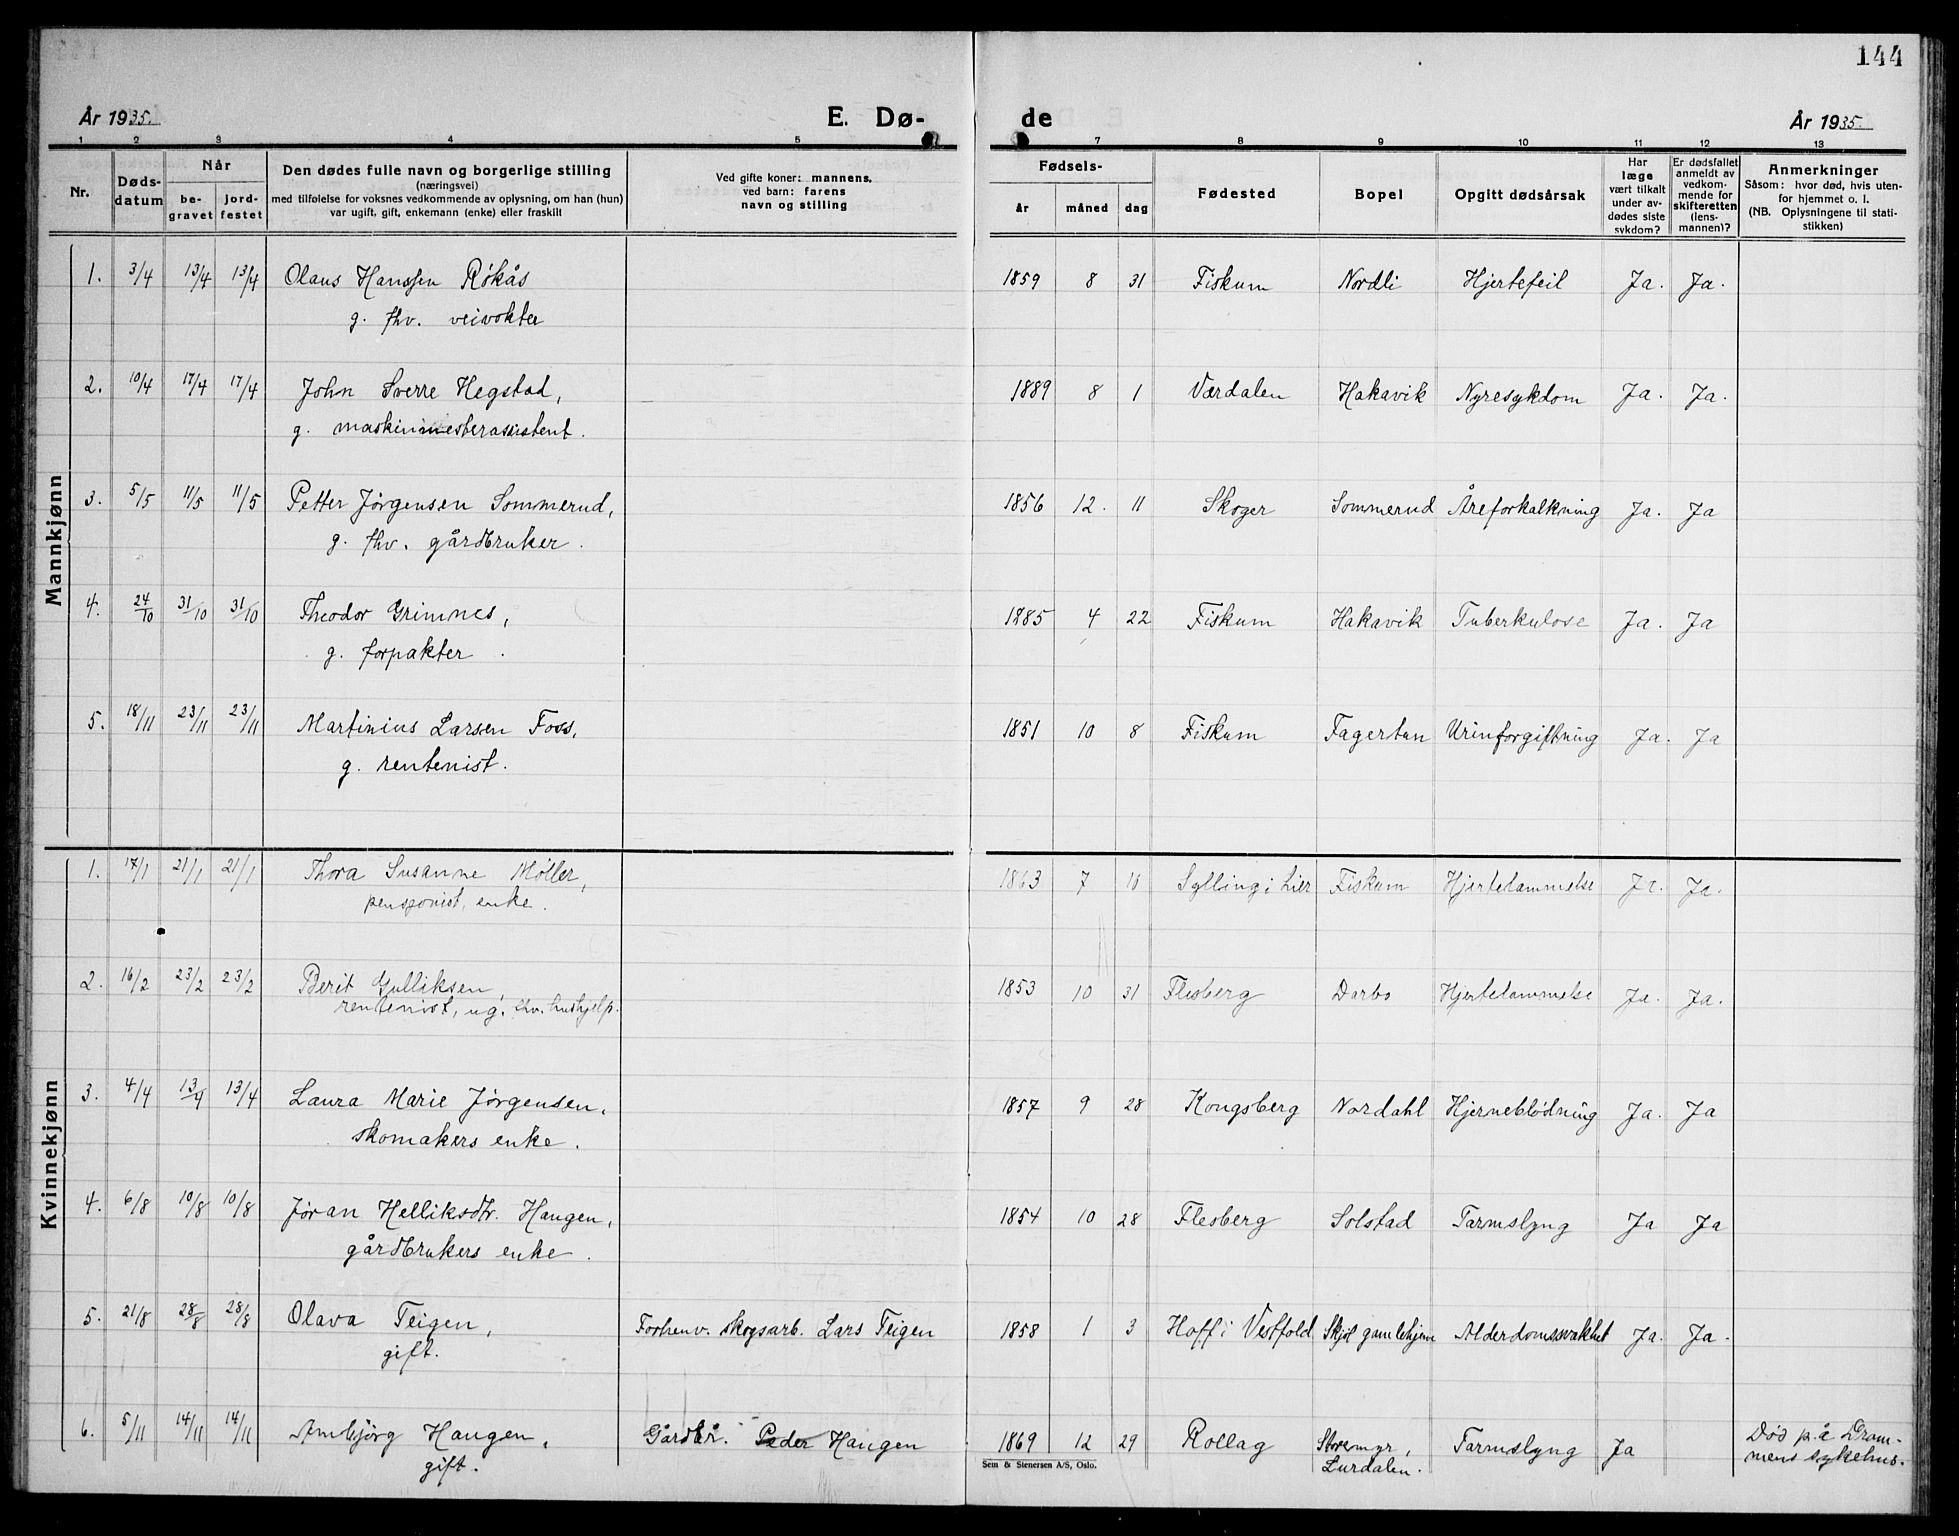 144
År 1935.
E. Dø-
de
År 1935.
1 2 3 4 5 7 8 9 10 11 12 13
Nr.
Døds-
datum
Når
be-
gravet
jord-
festet
Den dødes fulle navn og borgerlige stilling
(næringsvei)
med tilføielse for voksnes vedkommende av oplysning, om han (hun)
var ugift, gift, enkemann (enke) eller fraskilt
Ved gifte koner: mannens,
ved barn: farens
navn og stilling
Fødsels-
år
måned
dag
Fødested
Bopel
Opgitt dødsårsak
Har
læge
vært tilkalt
under av-
dødes siste
sykdom?
Er dødsfallet
anmeldt av
vedkom-
mende for
skifteretten
(lens-
mannen)?
Anmerkninger
Såsom: hvor død, hvis uten-
for hjemmet o. l.
(NB. Oplysningene til stati-
stikken)
Mannkjønn
1. 3/4 13/4 13/4 Olaus Hanssen Røkås 1859 8 31 Fiskum Nordli Hjertefeil Ja. Ja.
g. fhv. veivokter
2. 10/4 17/4 17/4 John Sverre Hegstad, 1889 8 1 Værdalen Hakavik Nyresykdom Ja. Ja.
g. maskinmesterassistent.
3. 5/5 11/5 11/5 Petter Jørgensen Sommerud, 1856 12. 11 Skoger Sommerud Åreforkalkning Ja. Ja
g. fhv. gårdbruker.
4. 24/10 31/10 31/10 Theodor Grimnes, 1885 4 22 Fiskum Hakavik Tuberkulose Ja. Ja
g. forpakter.
5. 18/11 23/11 23/11 Martinius Larsen Foss, 1851 10 8 Fiskum Fagertun Urinforgiftning Ja. Ja
g. rentenist.
Kvinnekjønn
1. 17/1 21/1 21/1 Thora Susanne Møller, 1863 7 10 Sylling i Lier Fiskum Hjertelammelse Ja. Ja.
pensjonist, enke.
2. 16/2 23/2 23/2 Berit Gulliksen, 1853 10 31 Flesberg Darbo Hjertelammelse Ja. Ja.
rentenist, ug. fhv. hushjelp.
3. 4/4 13/4 13/4 Laura Marie Jørgensen, 1857 9 28 Kongsberg Nordahl Hjerneblødning Ja. Ja
skomakers enke.
4. 6/8 10/8 10/8 Jøran Helliksdtr. Haugen, 1854 10 28 Flesberg Solstad Tarmslyng Ja Ja
gårdbrukers enke.
5. 21/8 28/8 28/8 Olava Teigen, Forhenv. skogsarb. Lars Teigen 1858 1 3 Hoff i Vestfold Skjøl gamlehjem Alderdomssvakhet Ja. Ja.
gift.
6. 5/11 14/11 14/11 Ambjørg Haugen, Gårdbr. Peder Haugen 1869 12 29 Rollag Storemyr, Tarmslyng Ja Død på Dram-
gift. Lurdalen. mens sykehus.
Sem & Stenersen A/S, Oslo.